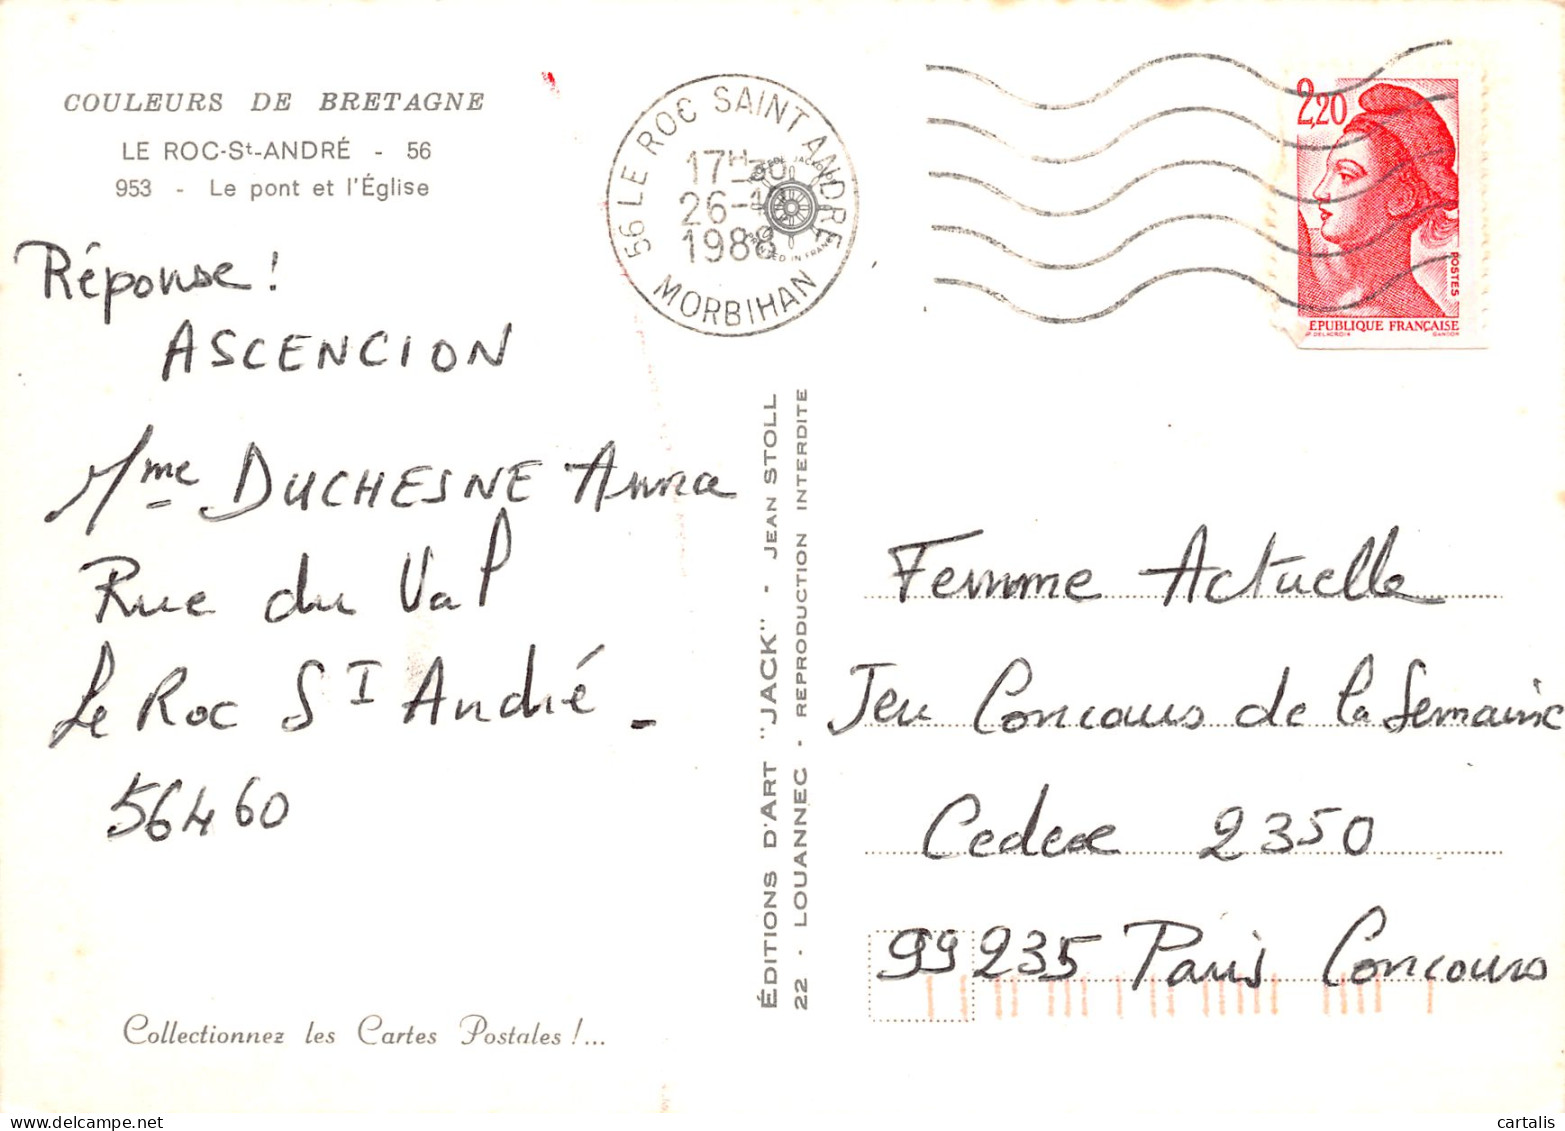 COULEURS DE BRETAGNE
LE ROC-St-ANDRÉ - 56
953 - Le pont et l'Église
Réponse !
ASCENCION
Mme DUCHESNE Anna
Rue du Val
Le Roc St André -
56460
Collectionnez les Cartes Postales !...
56 LE ROC SAINT ANDRE
17H30
26-
1988
MORBIHAN
ÉDITIONS D'ART "JACK" - JEAN STOLL
22 - LOUANNEC - REPRODUCTION INTERDITE
2,20
POSTES
EPUBLIQUE FRANÇAISE
DELACROIX GANDON
Femme Actuelle
Jeu Concours de la Semaine
Cedex 2350
99235 Paris Concours
cartalis